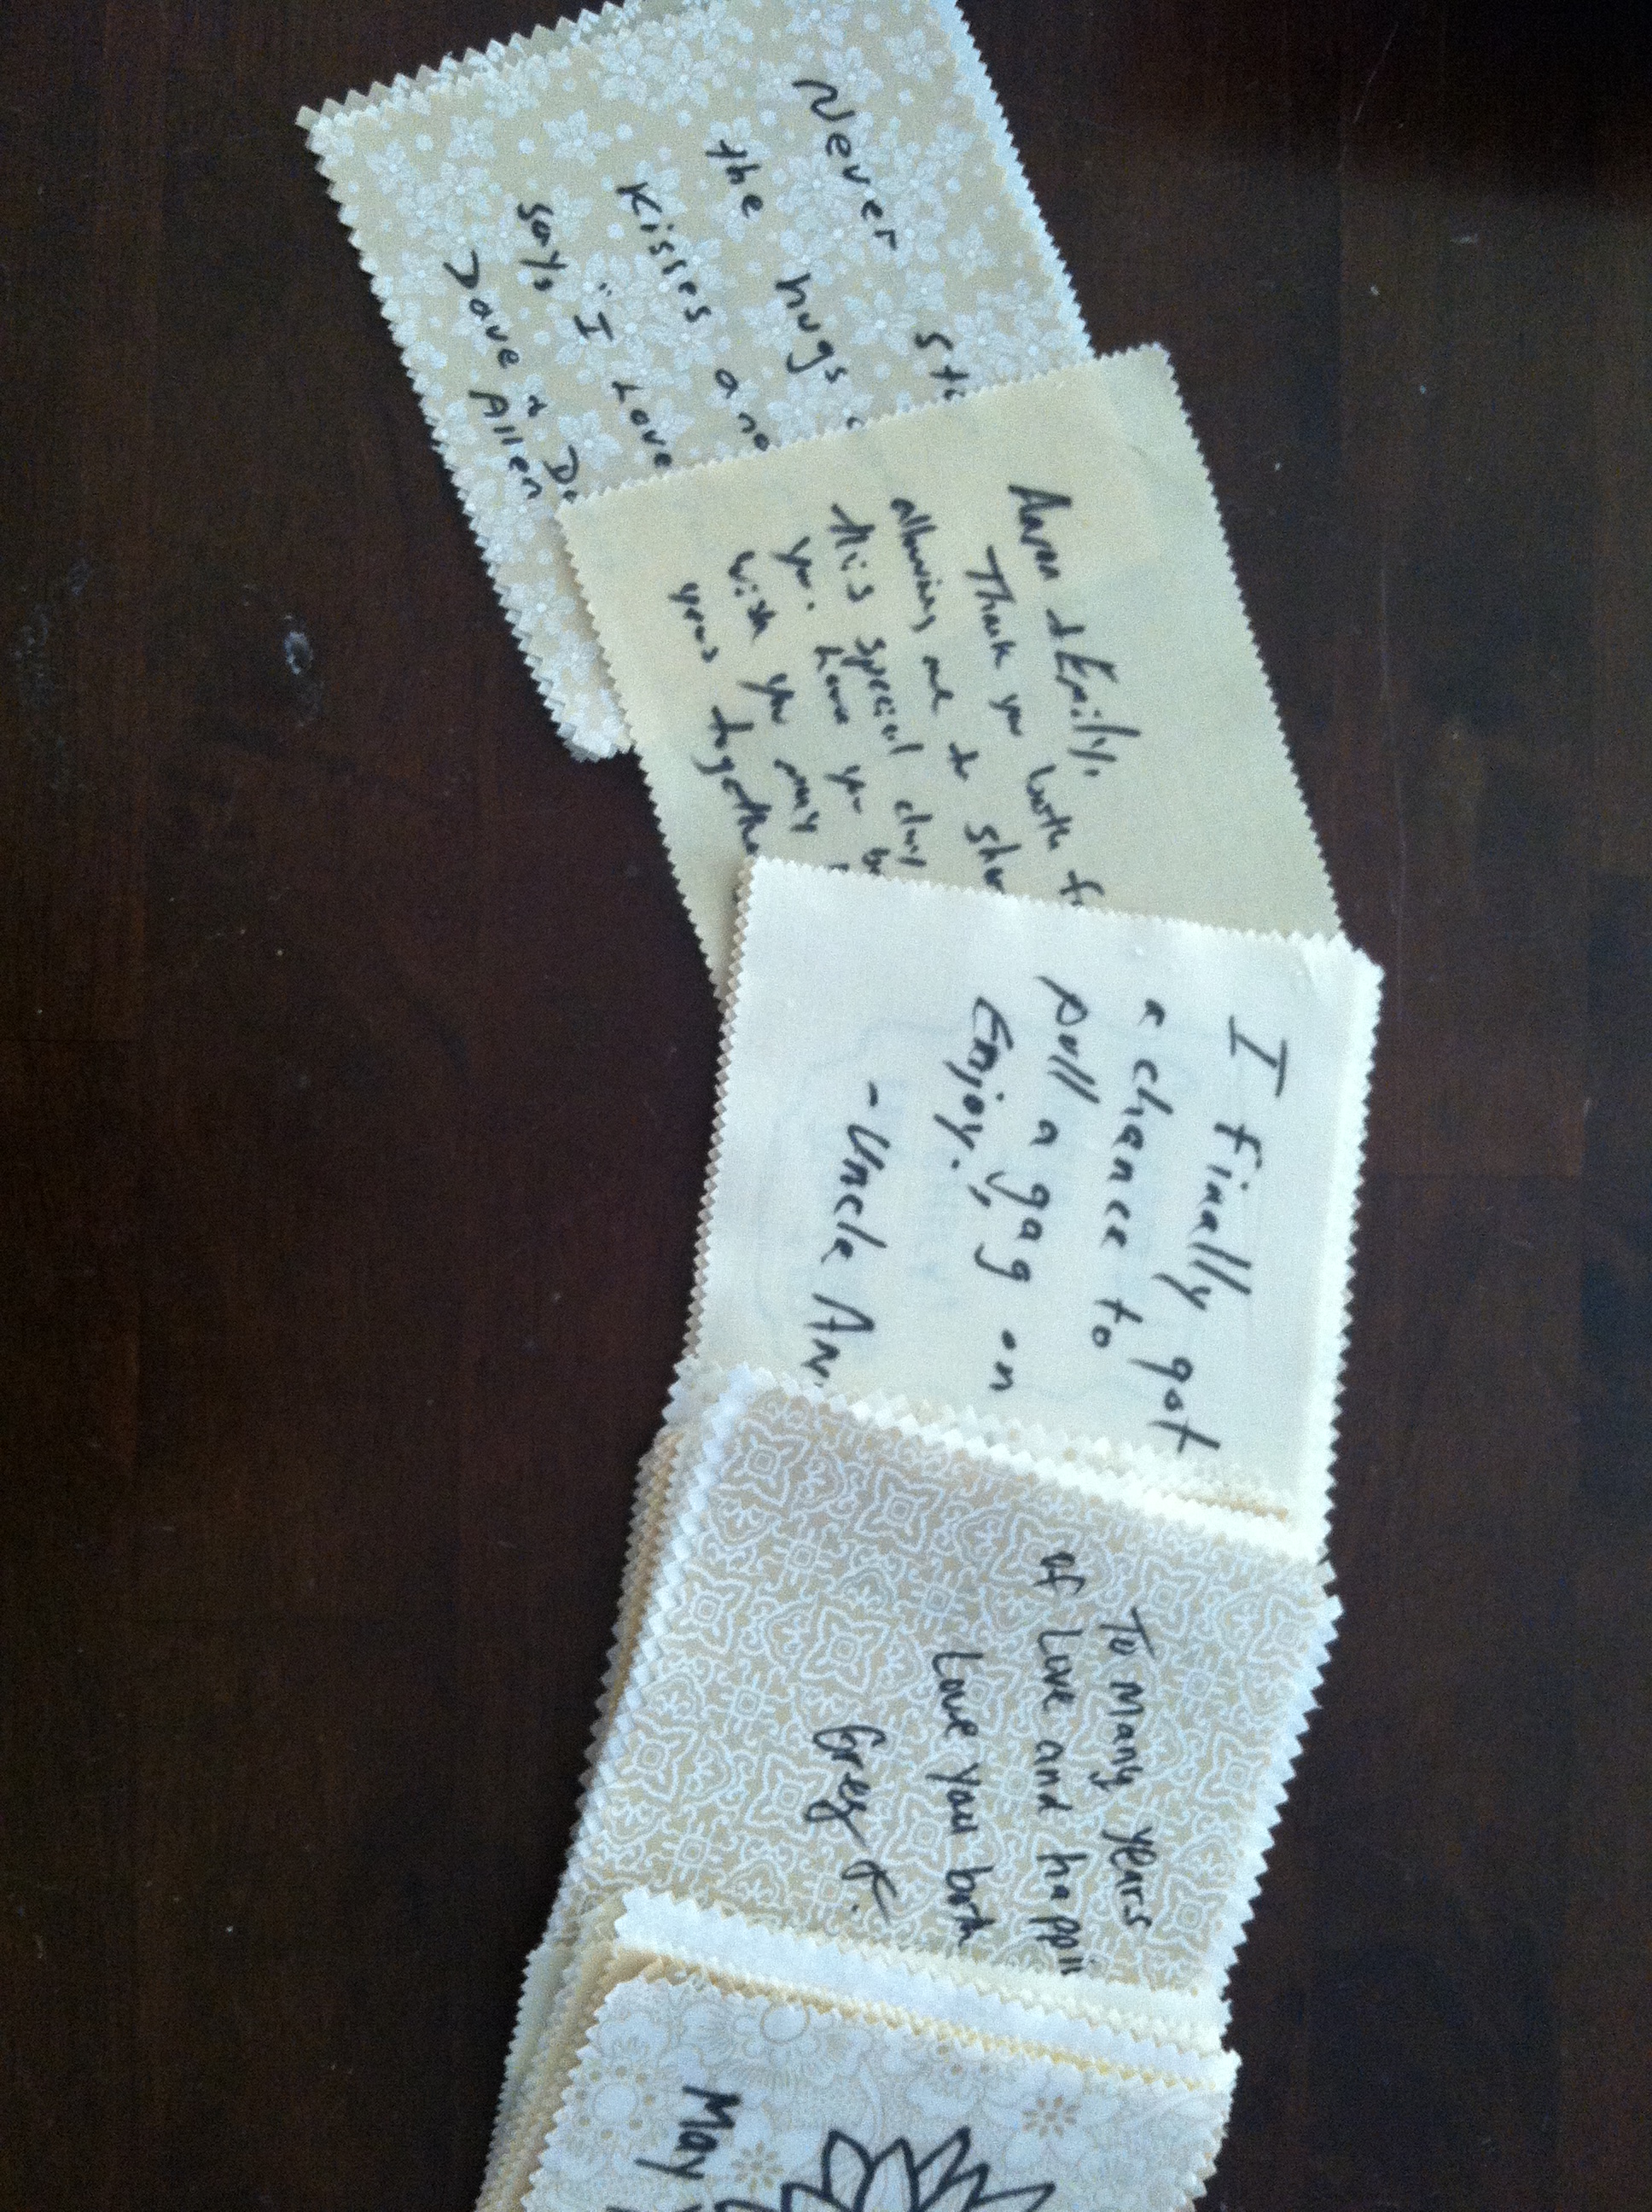 Never
the hugs
Kisses and
says "I Love
Dave & De
Allen
Aaron & Emily,
Thank you both
allowing me to
this special day
you. Love you
wish you many
years together
I finally got
a chance to
pull a gag on
Enjoy!,
- Uncle
To many years
of Love and
Love you both
Greg
May